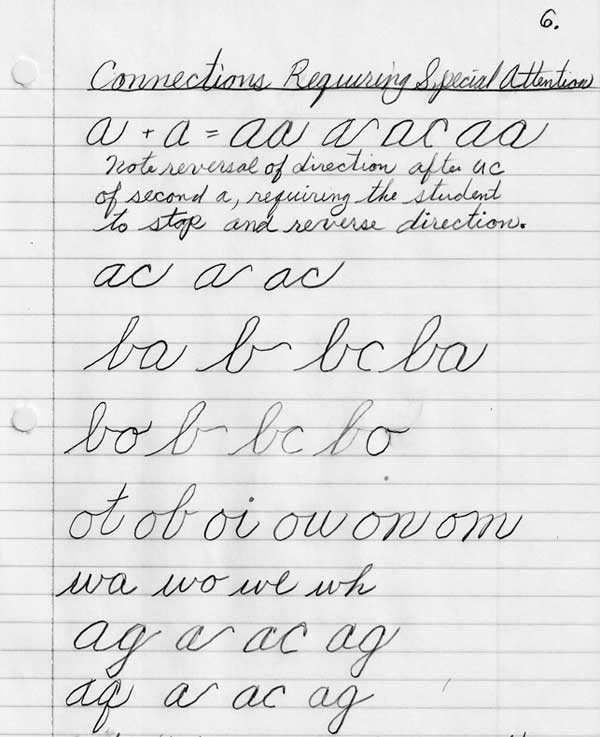 6.
Connections Requiring Special Attention
a + a = aa a ac aa
Note reversal of direction after uc
of second a, requiring the student
to stop and reverse direction.
ac a ac
ba b bc ba
bo b bc bo
ot ob oi ow on om
wa wo we wh
ag a ac ag
aq a ac ag